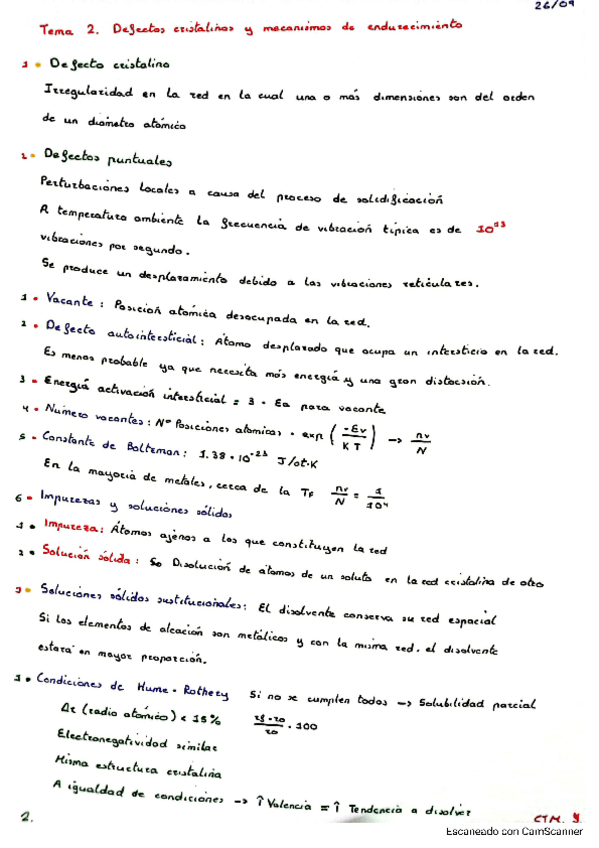 26/09
Tema 2. Defectos cristalinos y mecanismos de endurecimiento
1 • Defecto cristalino
Irregularidad en la red en la cual una o más dimensiones son del orden
de un diámetro atómico
2 • Defectos puntuales
Perturbaciones locales a causa del proceso de solidificación
A temperatura ambiente la frecuencia de vibración típica es de 10¹³
vibraciones por segundo.
Se produce un desplazamiento debido a las vibraciones reticulares.
1 • Vacante : Posición atómica desocupada en la red.
2 • Defecto autointersticial : Átomo desplazado que ocupa un intersticio en la red.
Es menos probable ya que necesita más energía y una gran distorsión.
3 • Energía activación intersticial = 3 · Ea para vacante
4 • Número vacantes : Nº Posiciones atómicas · exp (-Ev / KT) → nv / N
5 • Constante de Boltzman : 1.38 · 10⁻²³ J/at·K
En la mayoría de metales, cerca de la Tf nv / N = 1 / 10⁴
6 • Impurezas y soluciones sólidas
1 • Impureza : Átomos ajenos a los que constituyen la red
2 • Solución sólida : Disolución de átomos de un soluto en la red cristalina de otro
3 • Soluciones sólidas sustitucionales : El disolvente conserva su red espacial
Si los elementos de aleación son metálicos y con la misma red. el disolvente
estará en mayor proporción.
1 • Condiciones de Hume - Rothery Si no se cumplen todos → Solubilidad parcial
Δr (radio atómico) < 15% · 100
Electronegatividad similar
Misma estructura cristalina
A igualdad de condiciones → ↑ Valencia = ↑ Tendencia a disolver
2.
CTM.
Escaneado con CamScanner